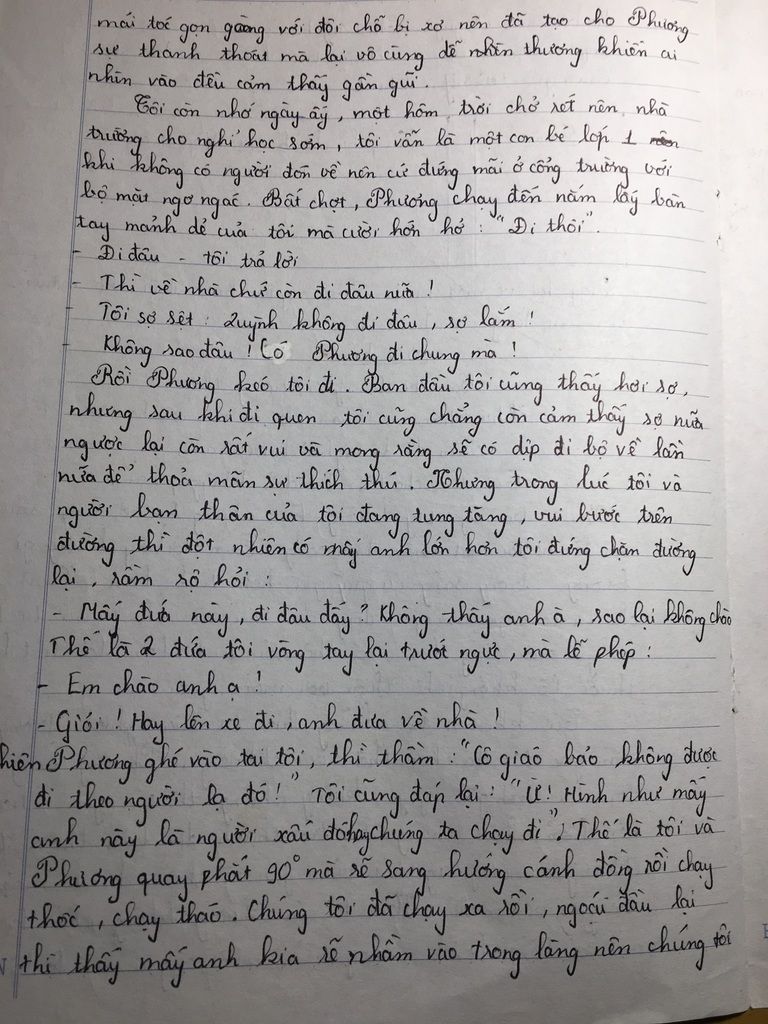 mái tóc gọn gàng với đôi chỗ bị xơ nên đã tạo cho Phương
sự thanh thoát mà lại vô cùng dễ nhìn thương khiến ai
nhìn vào đều cảm thấy gần gũi.
Tôi còn nhớ ngày ấy, một hôm trời chở rét nên nhà
trường cho nghỉ học sớm, tôi vẫn là một con bé lớp 1
khi không có người đón về nên cứ đứng mãi ở cổng trường với
bộ mặt ngơ ngác. Bất chợt, Phương chạy đến nắm lấy bàn
tay mảnh dẻ của tôi mà cười hớn hở: "Đi thôi".
- Đi đâu - tôi trả lời
- Thì về nhà chứ còn đi đâu nữa!
- Tôi sợ sệt: Quỳnh không đi đâu, sợ lắm!
- Không sao đâu! Có Phương đi chung mà!
Rồi Phương kéo tôi đi. Ban đầu tôi cũng thấy hơi sợ,
nhưng sau khi đi quen tôi cũng chẳng còn cảm thấy sợ nữa
ngược lại còn rất vui và mong rằng sẽ có dịp đi bộ về lần
nữa để thoả mãn sự thích thú. Nhưng trong lúc tôi và
người bạn thân của tôi đang tung tăng, vui bước trên
đường thì đột nhiên có mấy anh lớn hơn tôi đứng chặn đường
lại, rầm rộ hỏi:
- Mấy đứa này, đi đâu đấy? Không thấy anh à, sao lại không chào
Thế là 2 đứa tôi vòng tay lại trước ngực, mà lễ phép:
- Em chào anh ạ!
- Giỏi! Hay lên xe đi, anh đưa về nhà!
hiên Phương ghé vào tai tôi, thì thầm: "Cô giáo bảo không được
đi theo người lạ đó!" Tôi cũng đáp lại: "Ừ! Hình như mấy
anh này là người xấu đó hay chúng ta chạy đi"; Thế là tôi và
Phương quay phắt 90° mà rẽ sang hướng cánh đồng rồi chạy
thóc, chạy tháo. Chúng tôi đã chạy xa rồi, ngoái đầu lại
thì thấy mấy anh kia rẽ nhầm vào trong làng nên chúng tôi